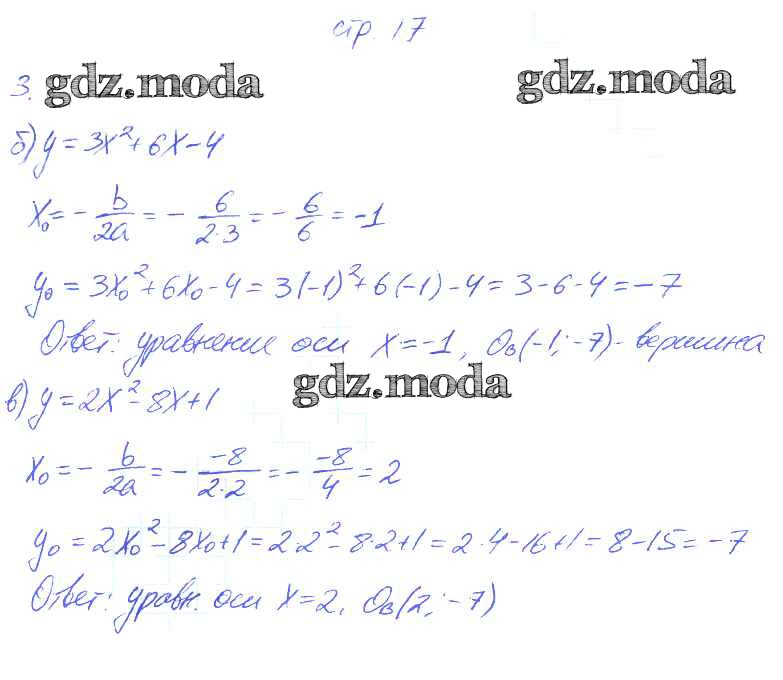 стр. 17
3. gdz.moda gdz.moda
б) y = 3x² + 6x - 4
x₀ = - b/2a = - 6/2·3 = - 6/6 = -1
y₀ = 3x₀² + 6x₀ - 4 = 3(-1)² + 6(-1) - 4 = 3 - 6 - 4 = -7
Ответ: уравнение оси x = -1, Oв(-1; -7) - вершина
gdz.moda
в) y = 2x² - 8x + 1
x₀ = - b/2a = - -8/2·2 = - -8/4 = 2
y₀ = 2x₀² - 8x₀ + 1 = 2·2² - 8·2 + 1 = 2·4 - 16 + 1 = 8 - 15 = -7
Ответ: уравн. оси x = 2, Oв(2; -7)